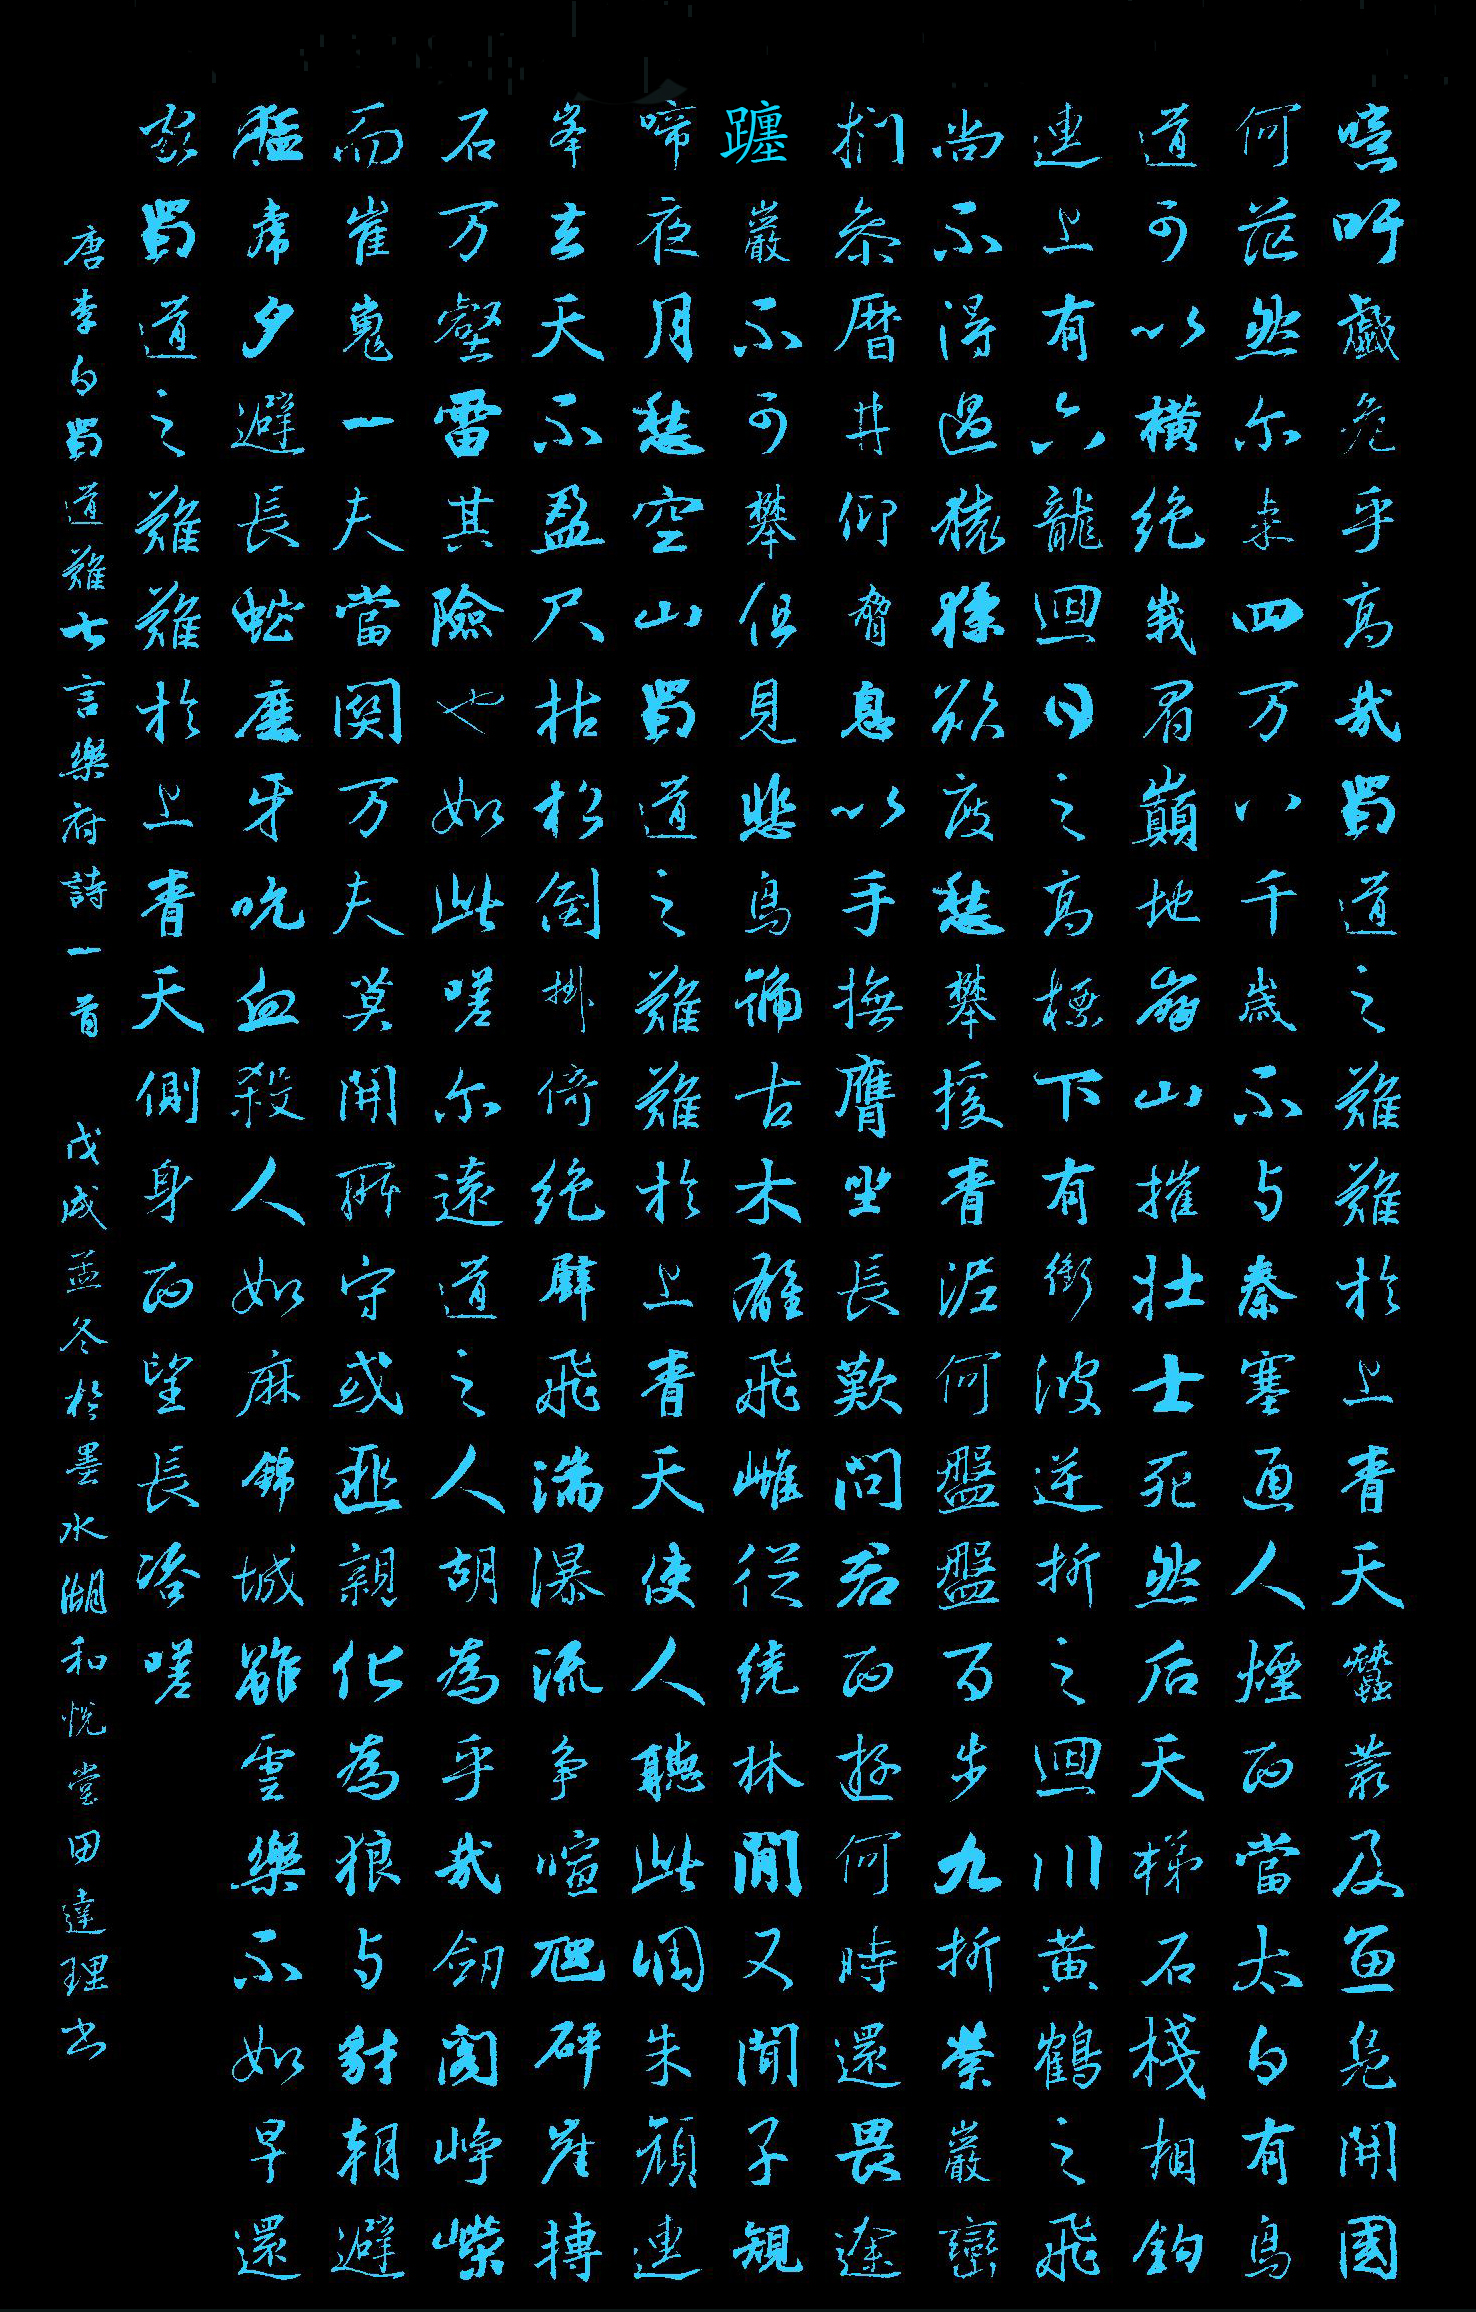 噫吁戲危乎高哉蜀道之難難於上青天蠶叢及魚鳧開國
何茫然尔来四万八千歲不与秦塞通人煙西當太白有鳥
道可以横绝峩眉巔地崩山摧壮士死然后天梯石栈相鈎
連上有六龍迴日之高標下有衝波逆折之迴川黄鶴之飛
尚不得過猿猱欲度愁攀援青泥何盤盤百步九折萦巖巒
捫参曆井仰脅息以手撫膺坐長歎問君西游何時還畏途
躔巖不可攀但見悲鳥號古木雄飛雌從绕林間又聞子規
啼夜月愁空山蜀道之難難於上青天使人聽此凋朱顔連
峯去天不盈尺枯松倒掛倚绝壁飛湍瀑流争喧豗砰崖摶
石万壑雷其險也如此嗟尔遠道之人胡為乎哉劍閣崢嶸
而崔嵬一夫當関万夫莫開所守或匪親化為狼与豺朝避
猛虎夕避長蛇磨牙吮血殺人如麻錦城雖雲樂不如早還
家蜀道之難難於上青天側身西望長咨嗟
唐李白蜀道難七言樂府詩一首 戊戌孟冬於墨水湖和悦堂田達理书